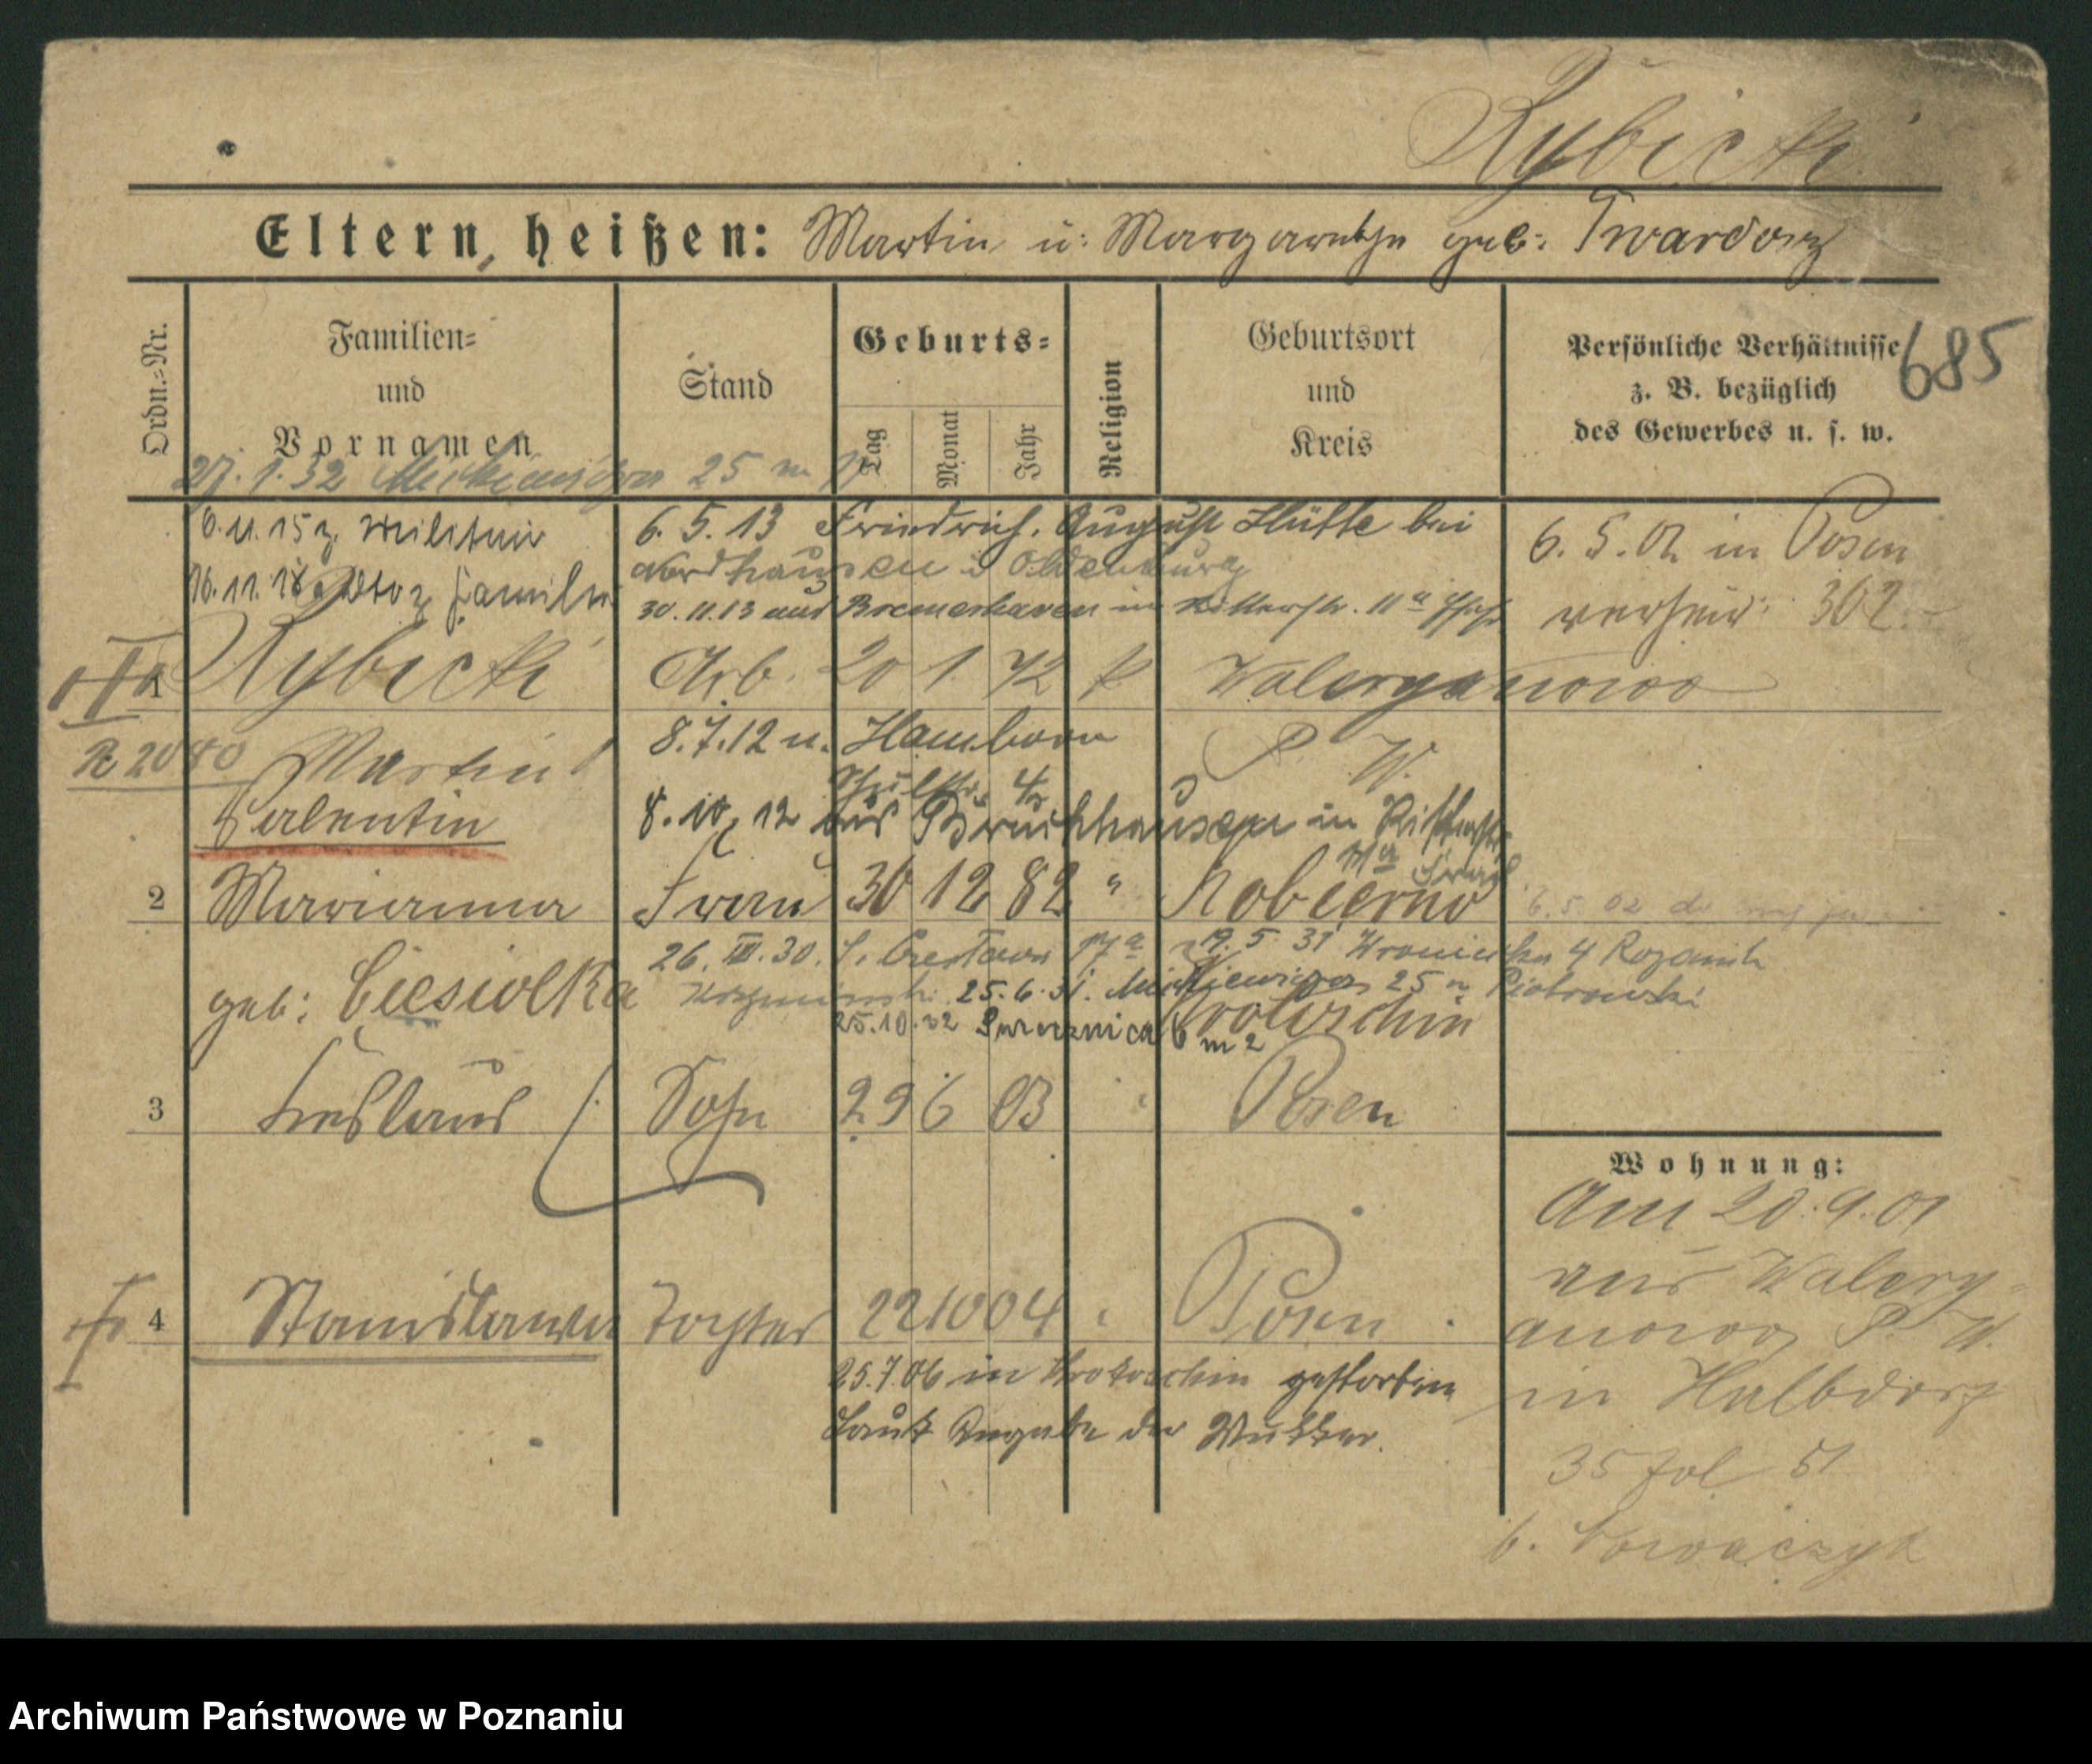 Rybicki
Eltern heißen: Martin u: Margarethe geb: Twardorz
Ordn.=Nr.
Familien=
und
Vornamen
Stand
Geburts=
Tag
Monat
Jahr
Religion
Geburtsort
und
Kreis
Persönliche Verhältnisse
z. B. bezüglich
des Gewerbes u. s. w.
685
27. 1. 32 25 m
6.11.15 z. Militair
16.11.18 z. Familie
6. 5. 13 Friedrich August Hütte bei
Nordhausen i Oldenburg
30.11.13 aus Bremerhaven in Ritterstr. 11a
6. 5. 02 in Posen
verheir: 302
1 Rybicki Arb. 20 1 72 k Waleryanowo
R 2040
Martin
Valentin
8.7.12 n. Hamborn
Schulstr. 4
P. W.
8. 10. 12 aus Bruckhausen in
2 Marianna Frau 30 12 82 " Kobierno
6. 5. 02
geb: Ciesiolka
26. III. 30. 19. 5. 31 Wroniecka 4
25. 6. 31. Mickiewicza 25 Piotrowski
Krotoschin
25.10.32 6 m 2
3 Ladislaus Sohn 29 6 03 Posen
Wohnung:
Am 20.9.01
aus Walery-
anowo P. W.
in Halbdorf
35 fol 51
b. Nowaczyk
4 Stanislawa Tochter 22 10 04 Posen
25.7.06 in Krotoschin gestorben
laut Angabe der Mutter.
Archiwum Państwowe w Poznaniu